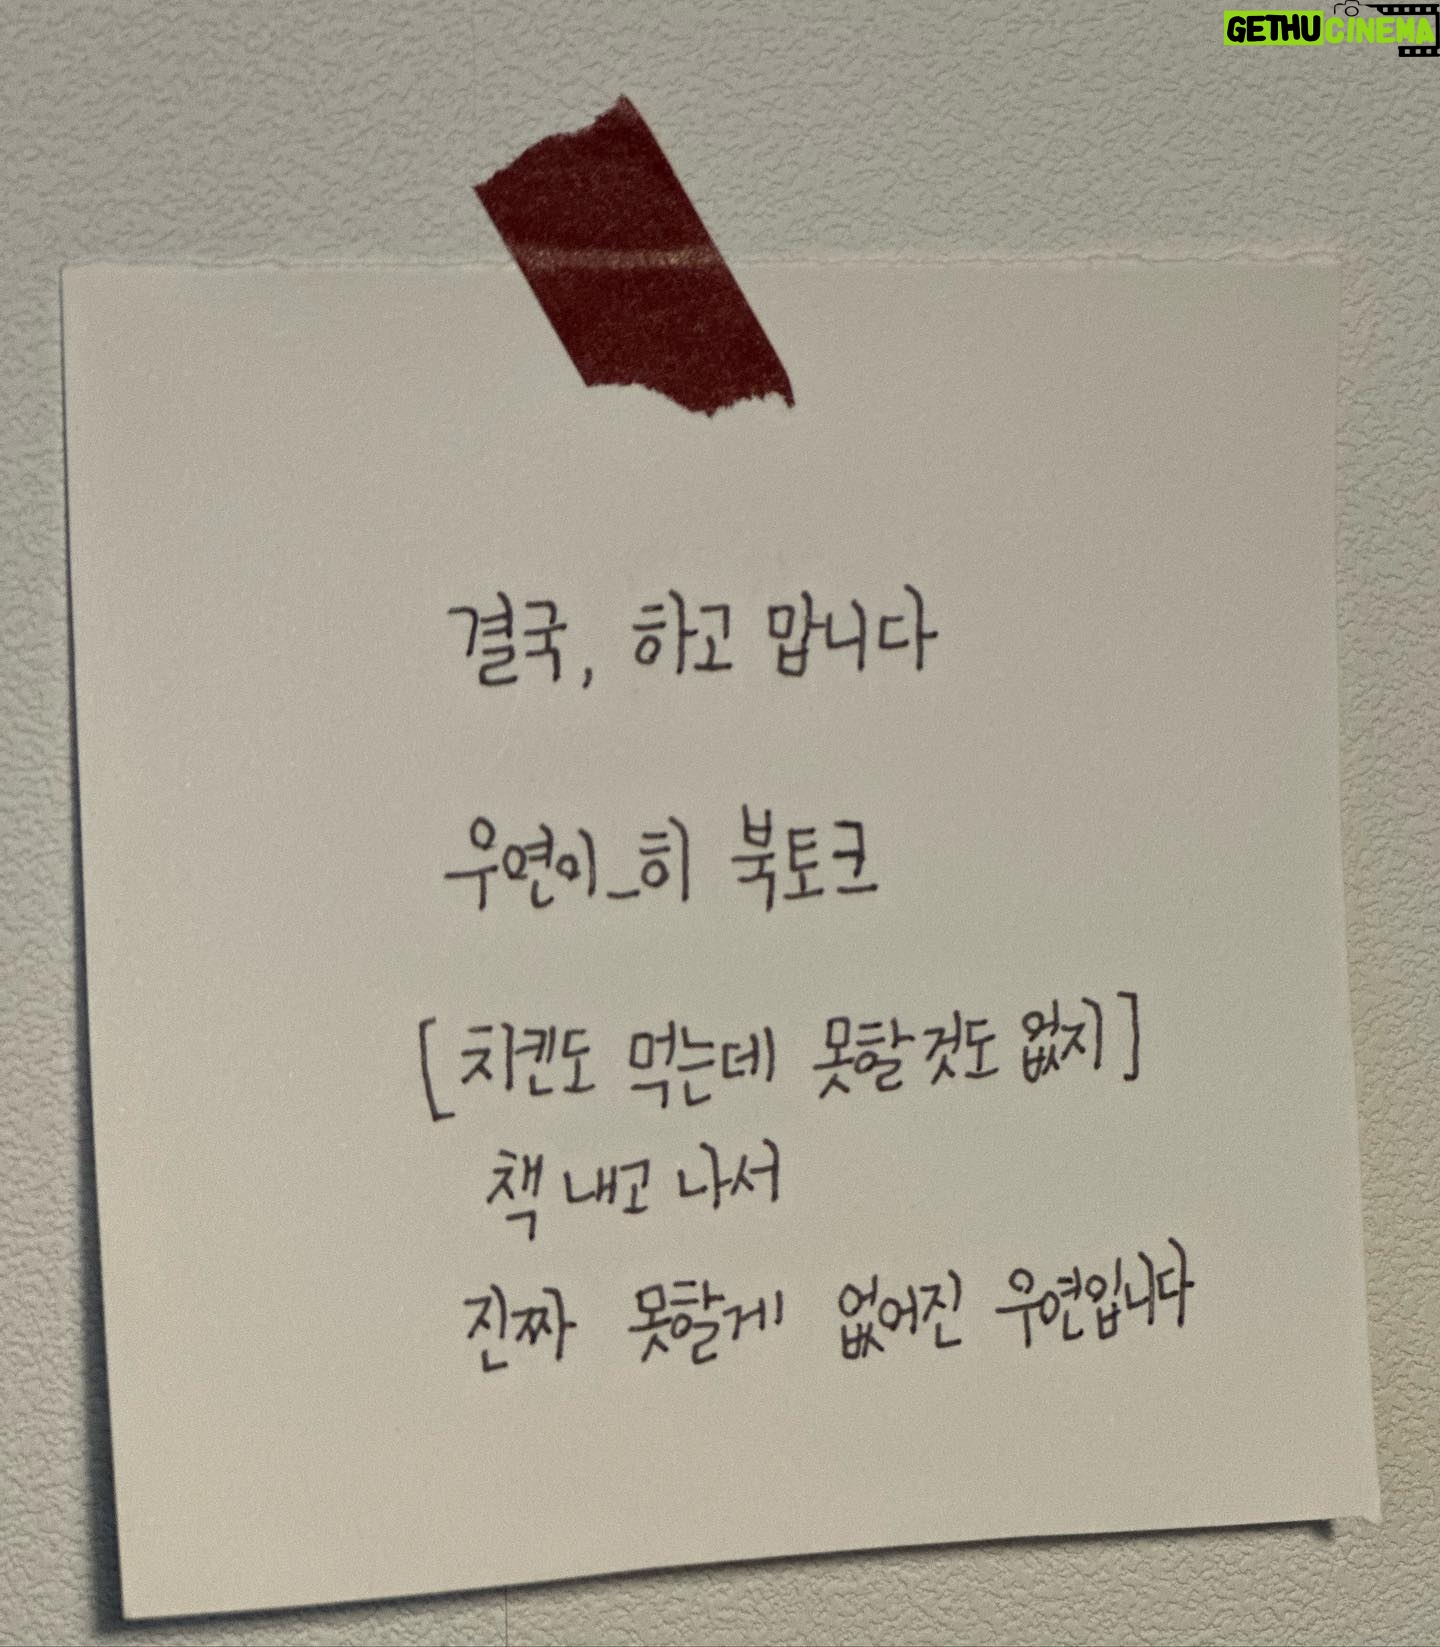 GETHU CINEMA
결국, 하고 맙니다
우연이_히 북토크
[치킨도 먹는데 못할것도 없지]
책 내고 나서
진짜 못할게 없어진 우연입니다